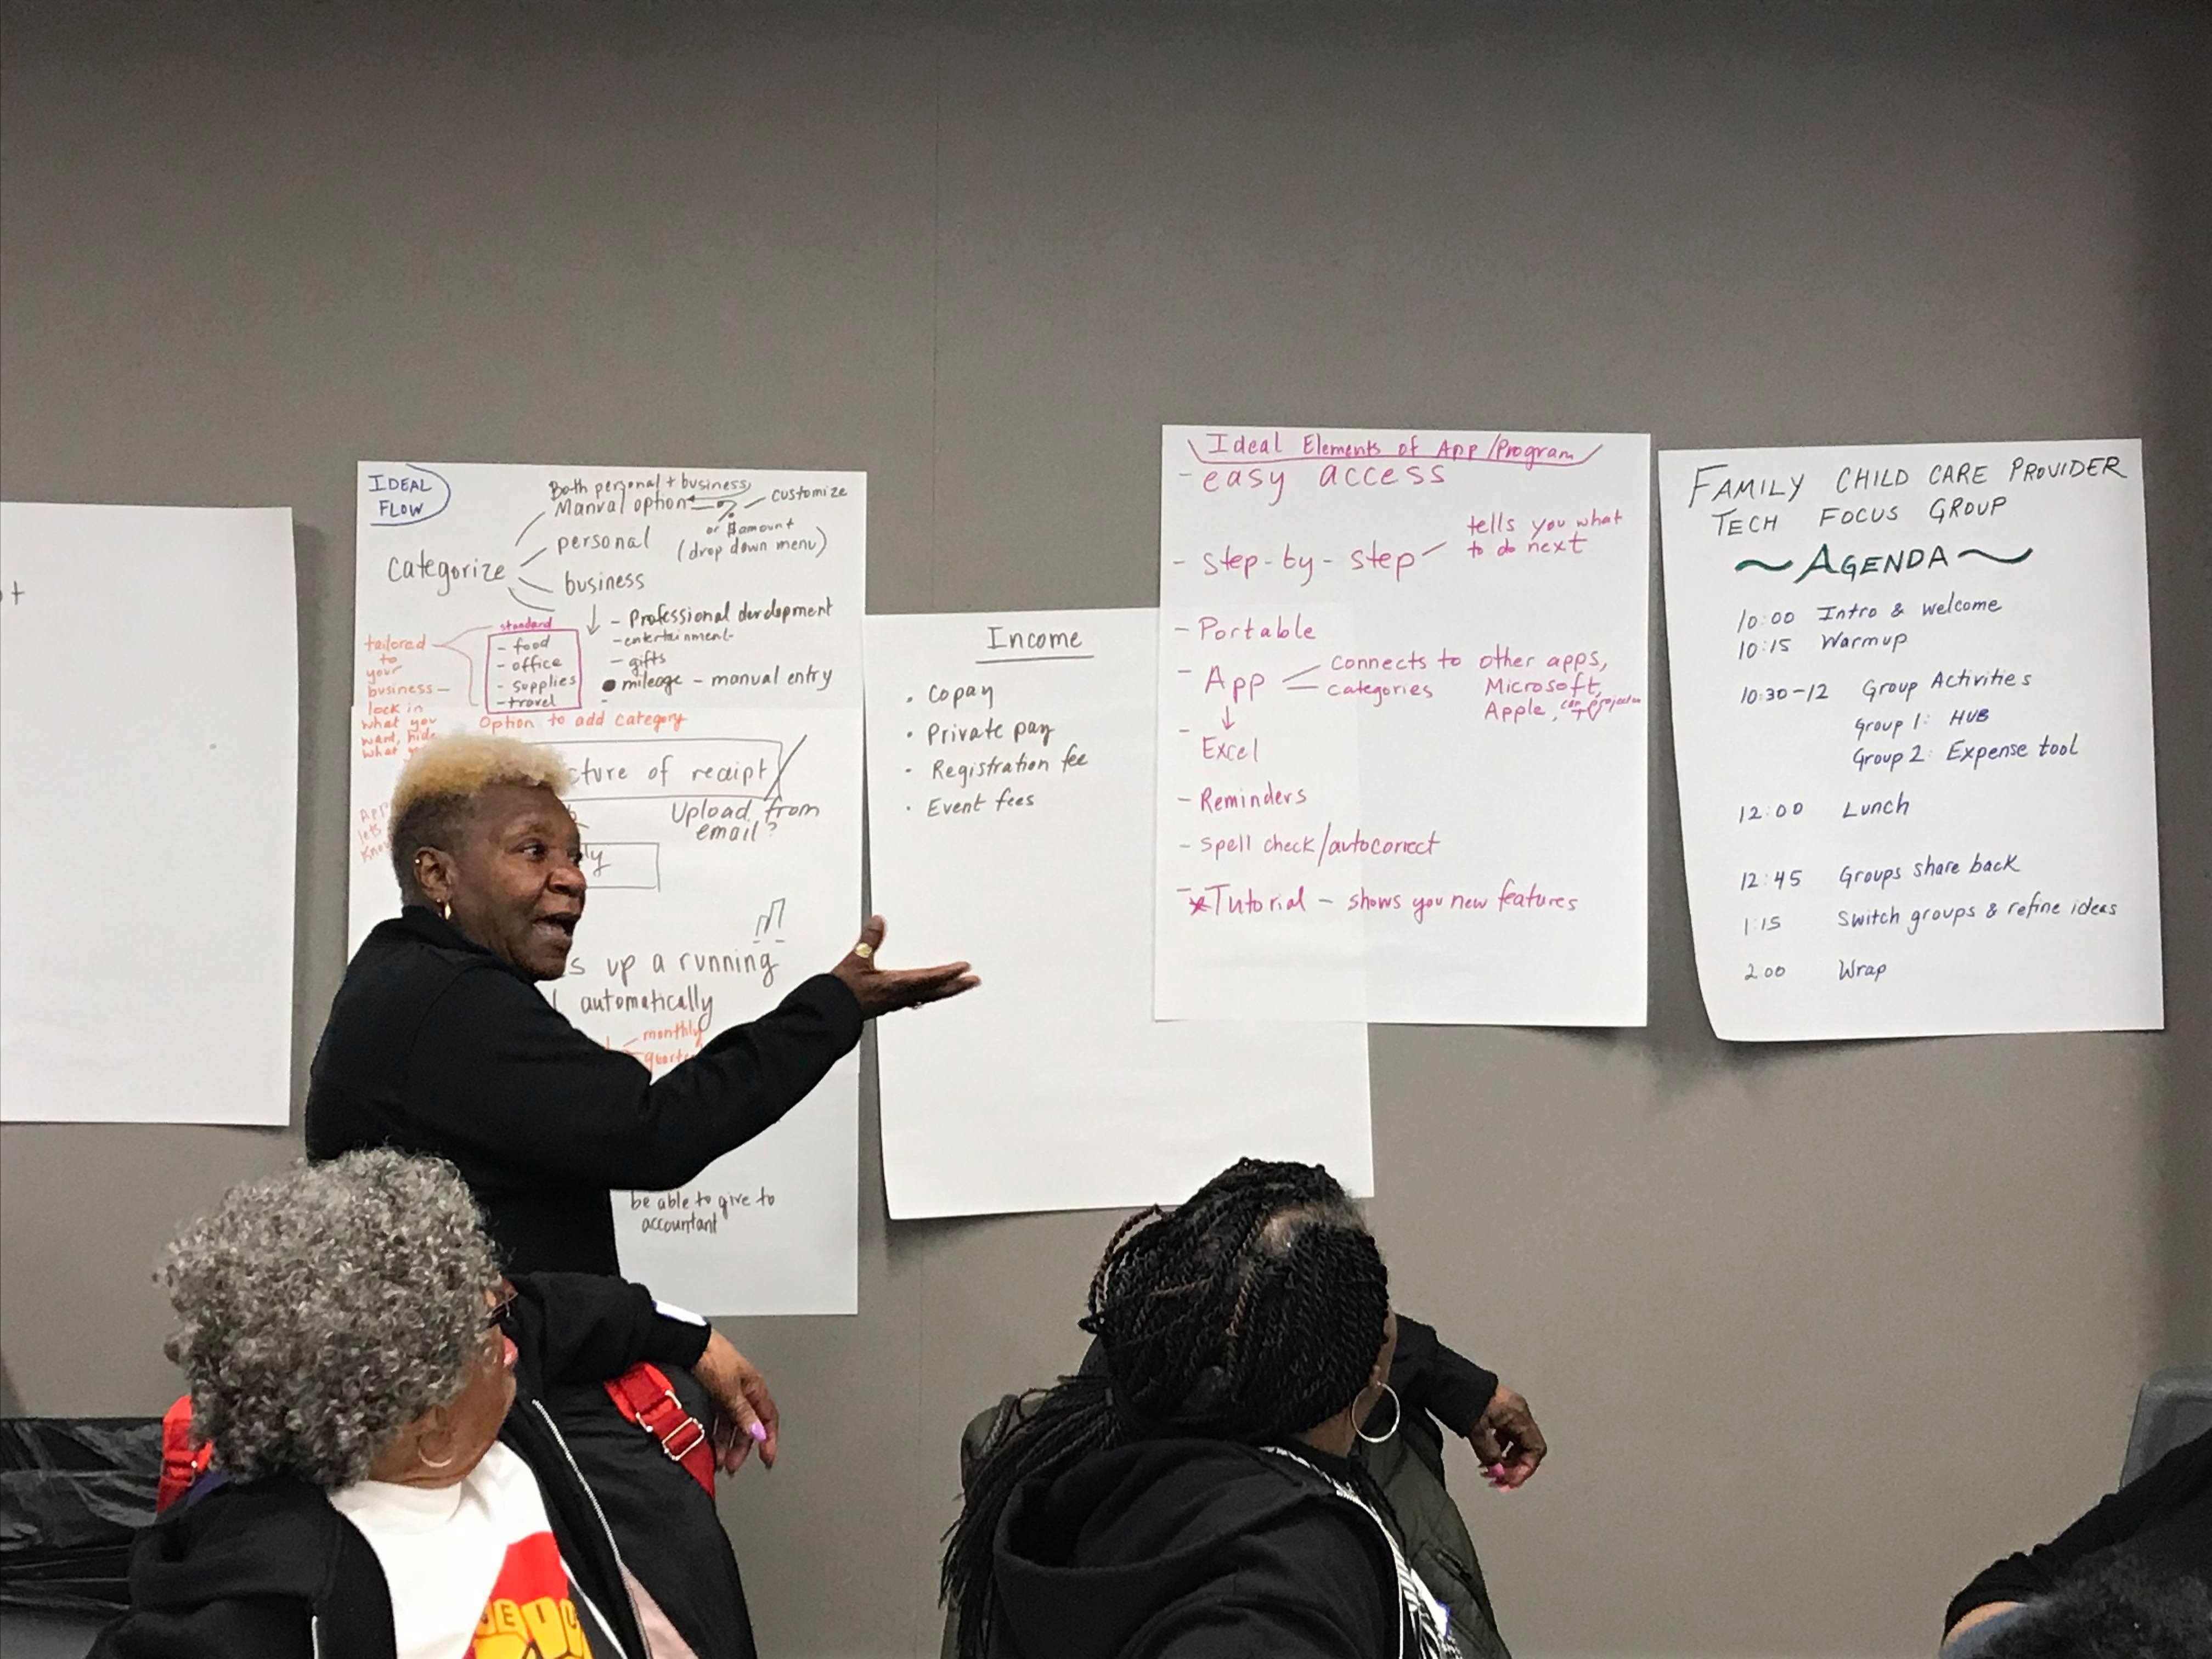 IDEAL
FLOW
Both personal + business
Manual option
%
customize
or $ amount
(drop down menu)
Categorize
personal
business
- Professional development
- entertainment
- gifts
mileage - manual entry
standard
- food
- office
- supplies
- travel
tailored
to
your
business -
lock in
what you
want, hide
what
Option to add category
cture of receipt
Upload from
email?
lets
Know
ly
s up a running
automatically
monthly
be able to give to
accountant
Income
• Copay
• Private pay
• Registration fee
• Event fees
Ideal Elements of App/Program
- easy access
- step-by-step
tells you what
to do next
- Portable
- App
connects to other apps,
categories
Microsoft,
Apple,
- Excel
- Reminders
- spell check/autocorrect
- Tutorial - shows you new features
FAMILY CHILD CARE PROVIDER
TECH FOCUS GROUP
~ AGENDA ~
10:00 Intro & welcome
10:15 Warmup
10:30-12 Group Activities
Group 1: HUB
Group 2: Expense tool
12:00 Lunch
12:45 Groups share back
1:15 Switch groups & refine ideas
2:00 Wrap